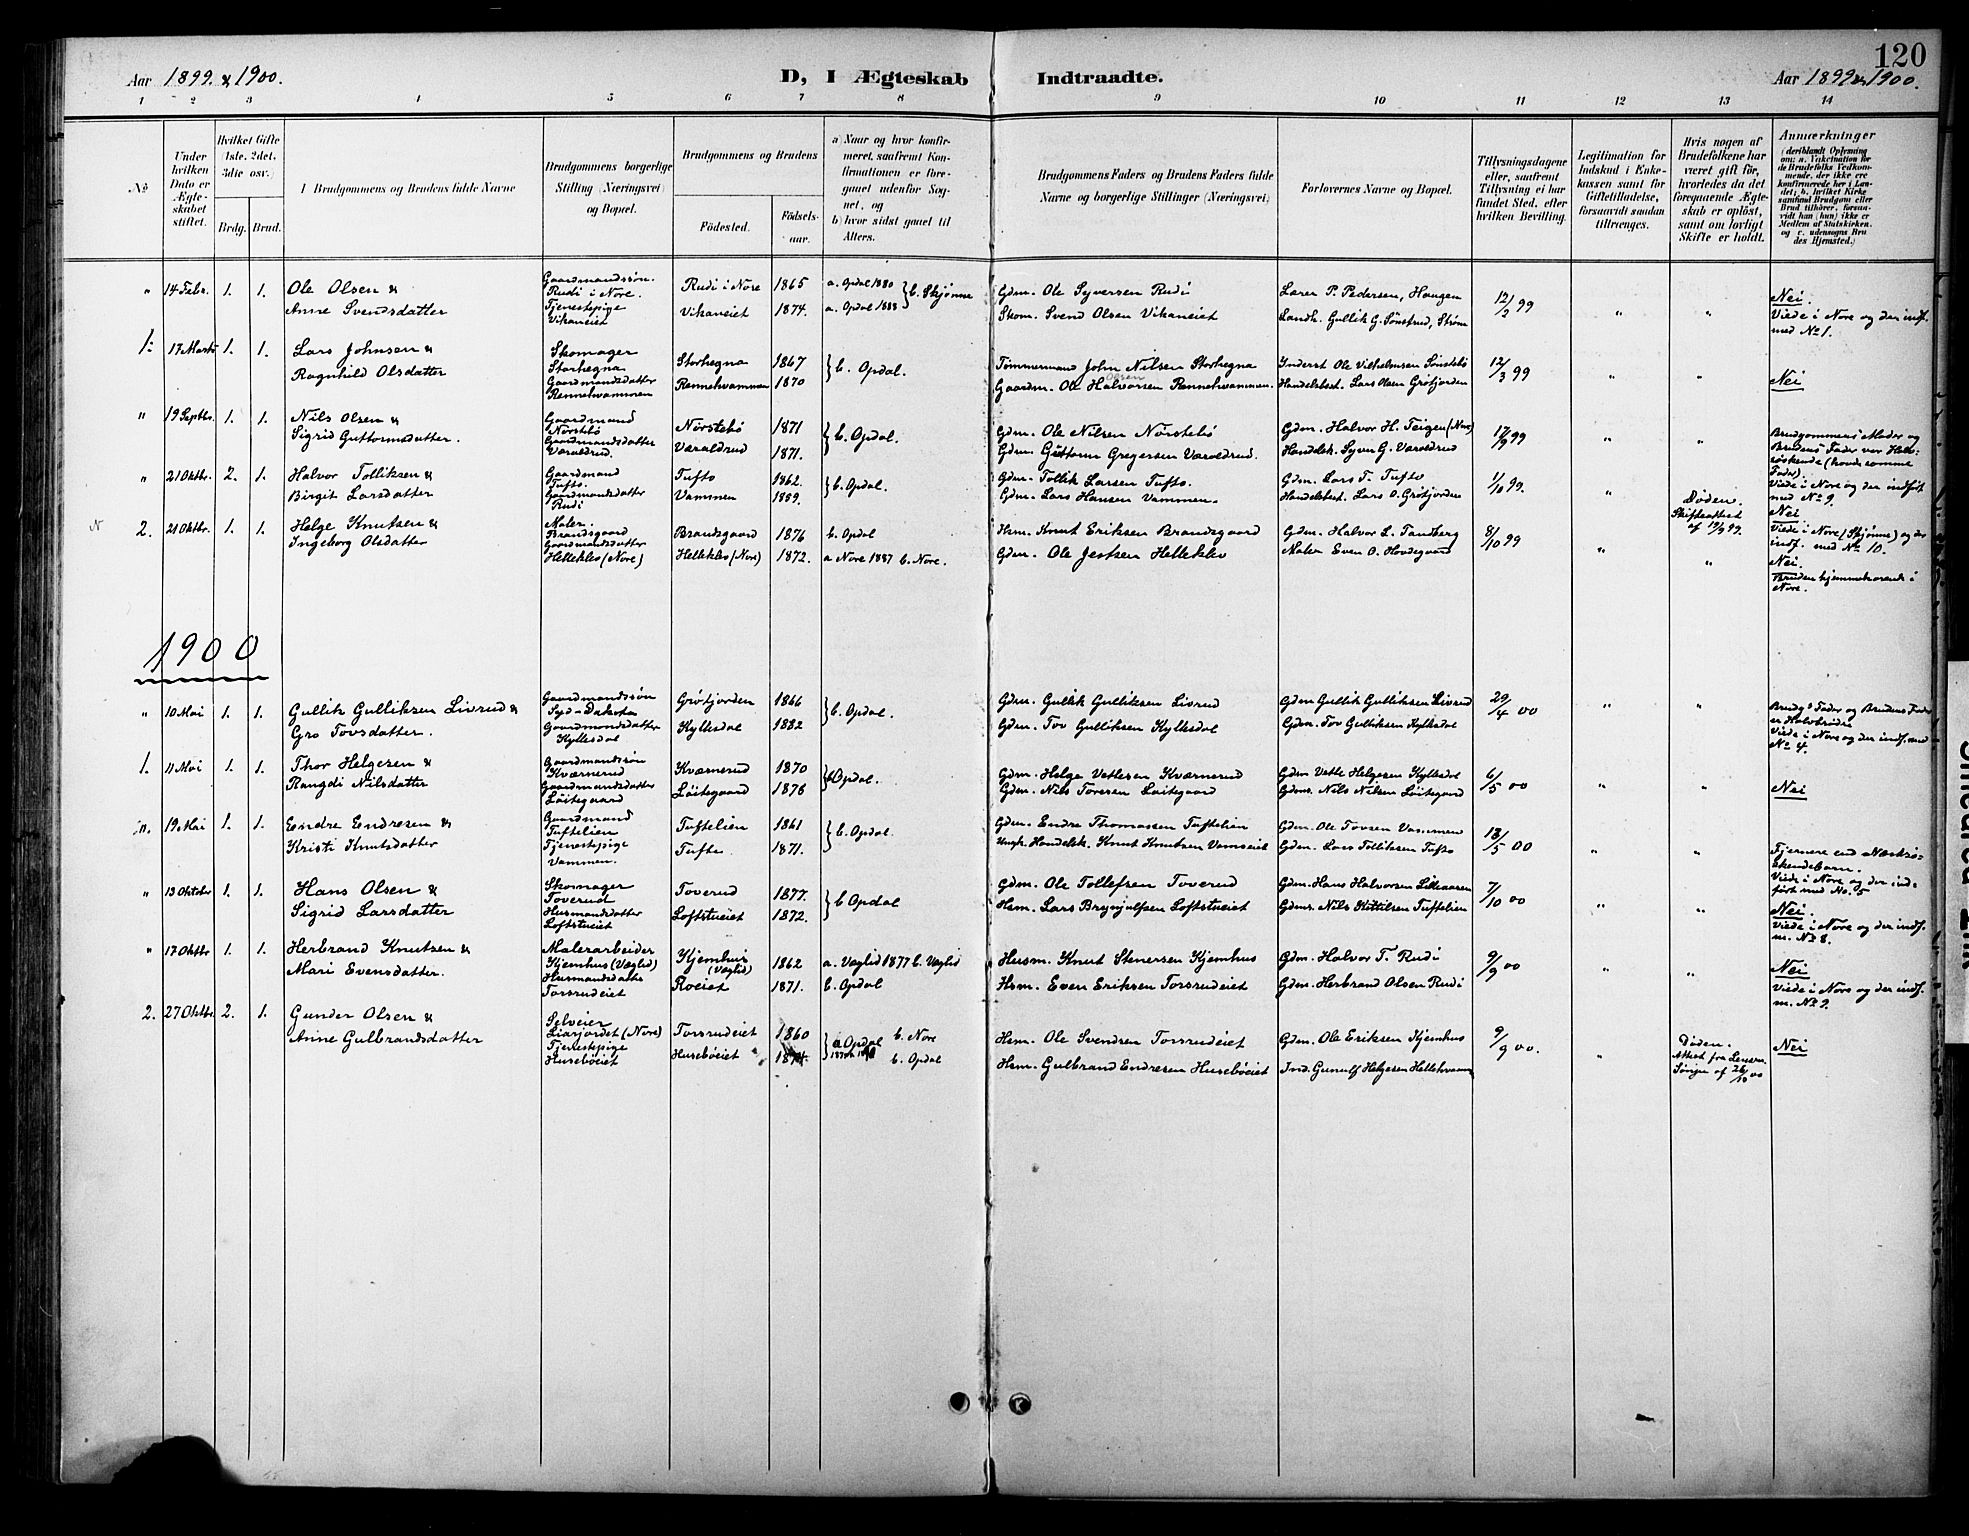 120
Aar 1899 & 1900.
D, I Ægteskab Indtraadte.
Aar 1899 & 1900.
1 2 3 4 5 6 7 8 9 10 11 12 13 14
No
Under hvilken Dato er Ægteskabet stiftet.
Hvilket Gifte (1ste, 2det, 3die osv.)
Brdg. Brud.
I Brudgommens og Brudens fulde Navne
Brudgommens borgerlige Stilling (Næringsvei) og Bopæl.
Brudgommens og Brudens
Födested.
Födselsaar.
a) Naar og hvor konfirmeret, saafremt Konfirmationen er foregaaet udenfor Sognet, og
b) hvor sidst gaaet til Alters.
Brudgommens Faders og Brudens Faders fulde Navne og borgerlige Stillinger (Næringsvei)
Forlovernes Navne og Bopæl.
Tillysningsdagene eller, saafremt Tillysning ei har fundet Sted, efter hvilken Bevilling.
Legitimation for Indskud i Enkekassen samt for Giftetilladelse, forsaavidt saadan tiltrænges.
Hvis nogen af Brudefolkene har været gift för, hvorledes da det foregaaende Ægteskab er oplöst, samt om lovligt Skifte er holdt.
Anmærkninger
(deriblandt Oplysning om: a. Vaksination for de Brudefolks Vedkommende, der ikke ere konfirmerede her i Landet; b. hvilket Kirkesamfund Brudgom eller Brud tilhörer, forsaavidt han (hun) ikke er Medlem af Statskirken, og c. udensogns Brudes Hjemsted.)
" 14 Febr. 1. 1. Ole Olsen &
Anne Svendsdatter
Gaardmandssøn.
Rudi i Nore.
Tjenestepige
Vikaneiet
Rudi i Nore 1865 a. Opdal 1880
Vikaneiet 1874. a. Opdal 1888 } b. Skjønne
Gdm. Ole Syversen Rudi
Skom. Svend Olsen Vikaneiet
Lærer P. Pedersen, Haugen
Landh. Gullik G. Sønstrud, Strøm
12/2 99 " "
Nei.
Viede i Nore og der indf. med No 1.
1. 17 Marts 1. 1. Lars Johnsen &
Ragnhild Olsdatter
Skomager
Storhegna
Gaardmandsdatter
Rennehvammen
Storhegna 1867
Rennehvammen 1870 } b. Opdal.
Tømmermand John Nilsen Storhegna
Gaardm. Ole Halvorsen Rennehvammen.
Inderst Ole Vilhelmsen Sønstebø
Handelsbest. Lars Olsen Grøtjorden
12/3 99 " "
Nei
" 19 Septbr. 1. 1. Nils Olsen &
Sigrid Guttormsdatter.
Gaardmand
Nørstebø
Gaardmandsdatter
Væraldrud.
Nørstebø 1871
Væraldrud 1871. } b. Opdal.
Gdm. Ole Nilsen Nørstebø
Gdm. Guttorm Gregersen Væraldrud.
Gdm. Halvor H. Teigen (Nore)
Handelsk. Syver G. Væraldrud
17/9 99 " "
Brudgommens Moder og Brudens Fader var Helsøskende (havde samme Fader).
Viede i Nore og der indført med No 9.
" 21 Oktbr. 2. 1. Halvor Tolliksen &
Birgit Larsdatter
Gaardmand
Tufto.
Gaardmandsdatter
Rudi
Tufto 1862.
Vammen 1899. } b. Opdal.
Gdm. Tollik Larsen Tufto.
Gdm. Lars Hansen Vammen.
Gdm. Lars T. Tufto
Handelsbest. Lars O. Grøtjorden
1/10 99. "
Døden.
Skifteattest af 19/9 99.
Nei
Viede i Nore (Skjønne) og der indf. med No 10.
2. 21 Oktbr. 1. 1. Helge Knutsen &
Ingeborg Olsdatter
Maler.
Brandsgaard
Gaardmandsdatter
Helleklev (Nore)
Brandsgaard 1876 b. Opdal
Helleklev (Nore) 1872. a Nore 1887 b. Nore.
Hsm. Knut Eriksen Brandsgaard
Gdm. Ole Jestsen Helleklev
Gdm. Halvor L. Tandberg
Maler Even O. Hovdegaard
8/10 99 " "
Nei.
Bruden hjemmehørende i Nore.
1900
" 10 Mai 1. 1. Gullik Gulliksen Livrud &
Gro Tovsdatter.
Gaardmandssøn
Syd-Dakota
Gaardmandsdatter
Kyllesdal
Grøtjorden 1866
Kyllesdal 1882 } b. Opdal.
Gdm. Gullik Gulliksen Livrud
Gdm. Tov Gulliksen Kyllesdal
Gdm Gullik Gulliksen Livrud
Gdm. Tov Gulliksen Kyllesdal
29/4 00 " "
Brudg's Fader og Brudens Fader er Halvbrødre
Viede i Nore og der indf. med No 4.
1. 11 Mai 1. 1. Thor Helgesen &
Rangdi Nilsdatter
Gaardmandssøn
Kværnerud
Gaardmandsdatter
Løitegaard
Kværnerud 1870
Løitegaard 1876 } b Opdal.
Gdm. Helge Vetlesen Kværnerud
Gdm. Nils Toresen Løitegaard
Gdm Vetle Helgesen Kyllesdal
Gdms. Nils Nilsen Løitegaard
6/5 00 " "
Nei
" 19 Mai 1. 1. Endre Endresen &
Kristi Knutsdatter
Gaardmand
Tuftelien
Tjenestepige
Vammen.
Tuftelien 1861
Tufte 1871. } b. Opdal.
Gdm. Endre Thomassen Tuftelien
Ungk. Handelsk. Knut Knutsen Vamseiet
Gdm. Ole Tovsen Vammen
Gdm. Lars Tolliksen Tufto
13/5 00 " "
Fjernere end Næstsøskendebarn.
Viede i Nore og der indført med No. 5
" 13 Oktober 1. 1. Hans Olsen &
Sigrid Larsdatter
Skomager
Toverud
Husmandsdatter
Loftstueiet
Toverud 1877.
Loftstueiet 1872. } b Opdal
Gdm. Ole Tollefsen Toverud
Hsm. Lars Brynjulfsen Loftstueiet
Gdm. Hans Halvorsen Lilleaasen
Gdms. Nils Kittilsen Tuftelien
7/10 00 " "
Nei.
Viede i Nore og der indf. m. No 8.
" 17 Oktbr 1. 1. Herbrand Knutsen &
Mari Evensdatter.
Malerarbeider
Kjemhus (Væglid)
Husmandsdatter
Torsrudeiet
Kjemhus (Væglid) 1862 a. Væglid 1877 b. Væglid
Roeiet 1871. b. Opdal
Husm. Knut Stenersen Kjemhus
Hsm. Even Eriksen Torsrudeiet
Gdm. Halvor T. Rudi
Gdm. Herbrand Olsen Rudi
9/9 00 " "
Nei
Viede i Nore og der indf. m. No 9.
2. 27 Oktbr. 2. 1. Gunder Olsen &
Anne Gulbrandsdatter
Selveier
Liarjordet (Nore)
Tjenestepige
Husebøeiet
Torsrudeiet 1860
Husebøeiet
a Opdal b. Nore
b. Opdal
Hsm. Ole Svendsen Torsrudeiet
Hsm. Gulbrand Endresen Husebøeiet
Gdm. Ole Eriksen Kjemhus
Ind. Gunulf Helgesen Hellehvammen
9/9 00. "
Døden.
Attest fra Lensm. af 26/10 00
Nei